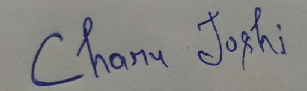 Charu Joshi